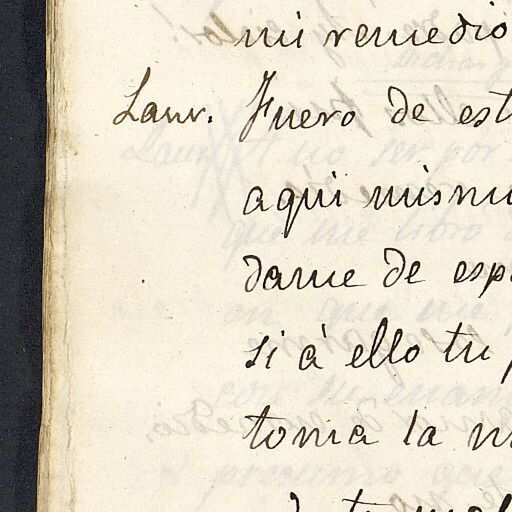 mi remedio
Laur. Fuero de est
aqui mismo
darme de esp
si à ello tu p
toma la m